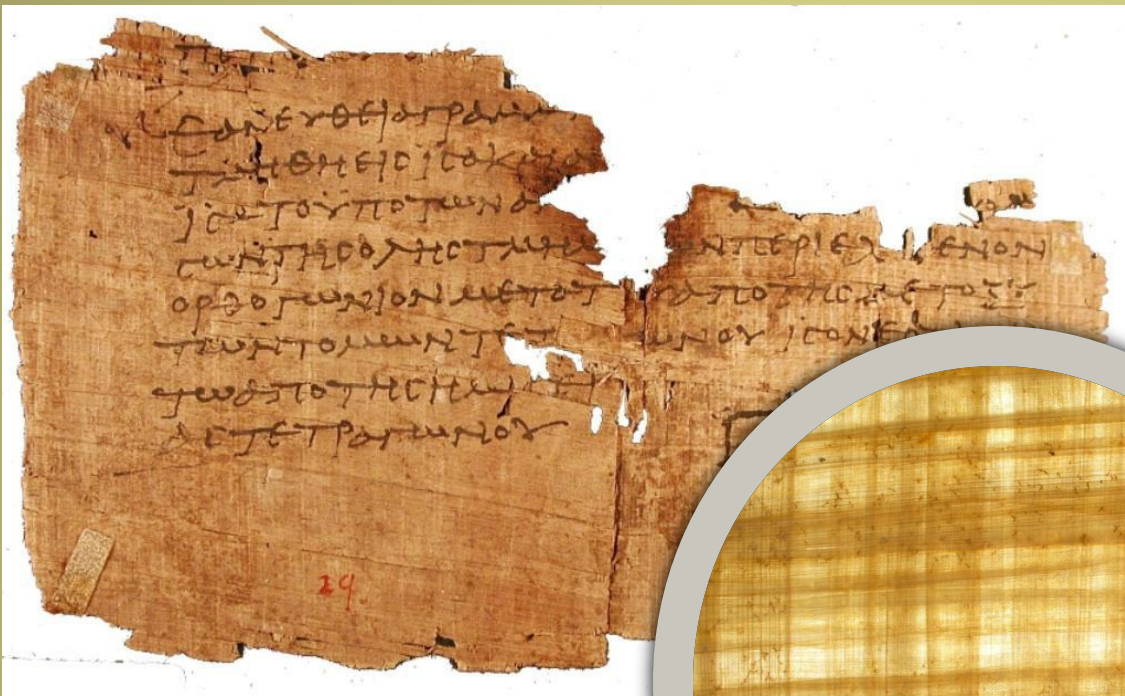 ΕΑΝΕΥΘΕΙΑΓΡΑΜΜ
ΤΜΗΘΗΕΙϹΙϹΑΚΑΙΑ
ΙϹΑΤΟΥΠΟΤΩΝΑ
ϹΩΝΤΗϹΟΛΗϹΤΜΗΜ ΝΠΕΡΙΕΧ ΜΕΝΟΝ
ΟΡΘΟΓΩΝΙΟΝΜΕΤΑΤ ΑΠΟΤΗϹΜΕΤΟΞΥ
ΤΩΝΤΟΜΩΝΤΕΤ ΩΝΟΥΙϹΟΝΕϹΤΙΝ
ΤΩΑΠΟΤΗϹΗΜΙ
ΑϹΤΕΤΡΑΓΩΝΟΥ
29.